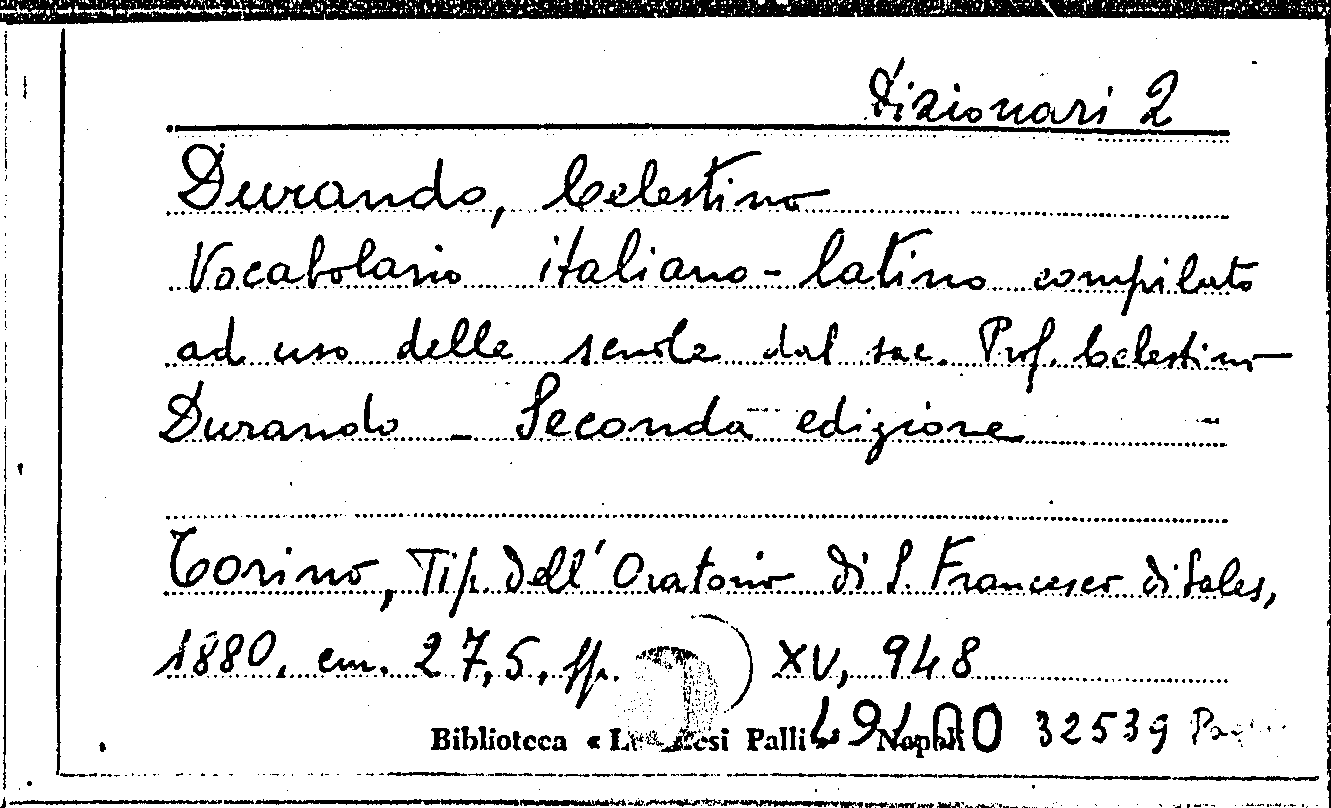 Dizionari 2
Durando, Celestino
Vocabolario italiano-latino compilato
ad uso delle scuole dal sac. Prof. Celestino
Durando - Seconda edizione
Torino, Tip. dell'Oratorio di S. Francesco di Sales,
1880, cm. 27,5, pp. XV, 948
Biblioteca « Palli » Napoli 32539